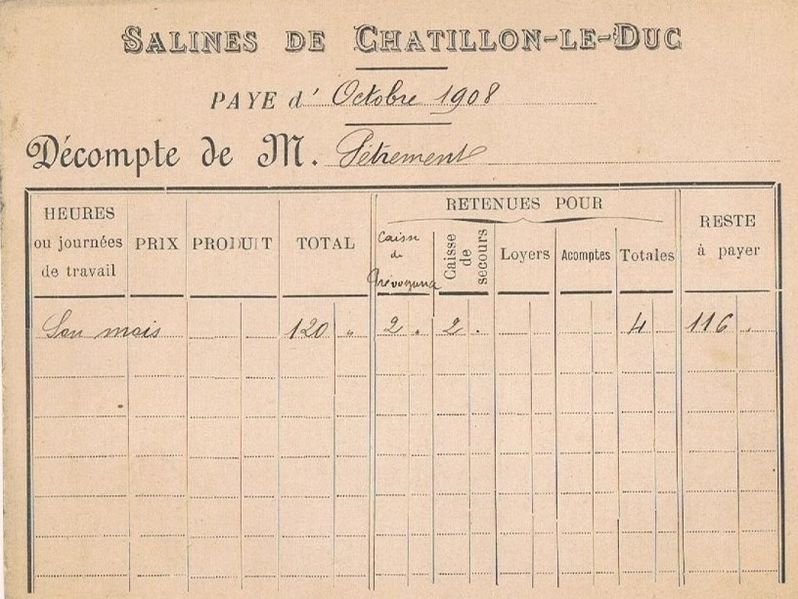 SALINES DE CHATILLON-LE-DUC
PAYE d' Octobre 1908
Décompte de M. Pétrement
RETENUES POUR
HEURES
ou journées
de travail
PRIX
PRODUIT
TOTAL
Caisse
de
Prévoyance
Caisse
de
secours
Loyers
Acomptes
Totales
RESTE
à payer
Son mois 120 " 2 . 2 . 4 116 .